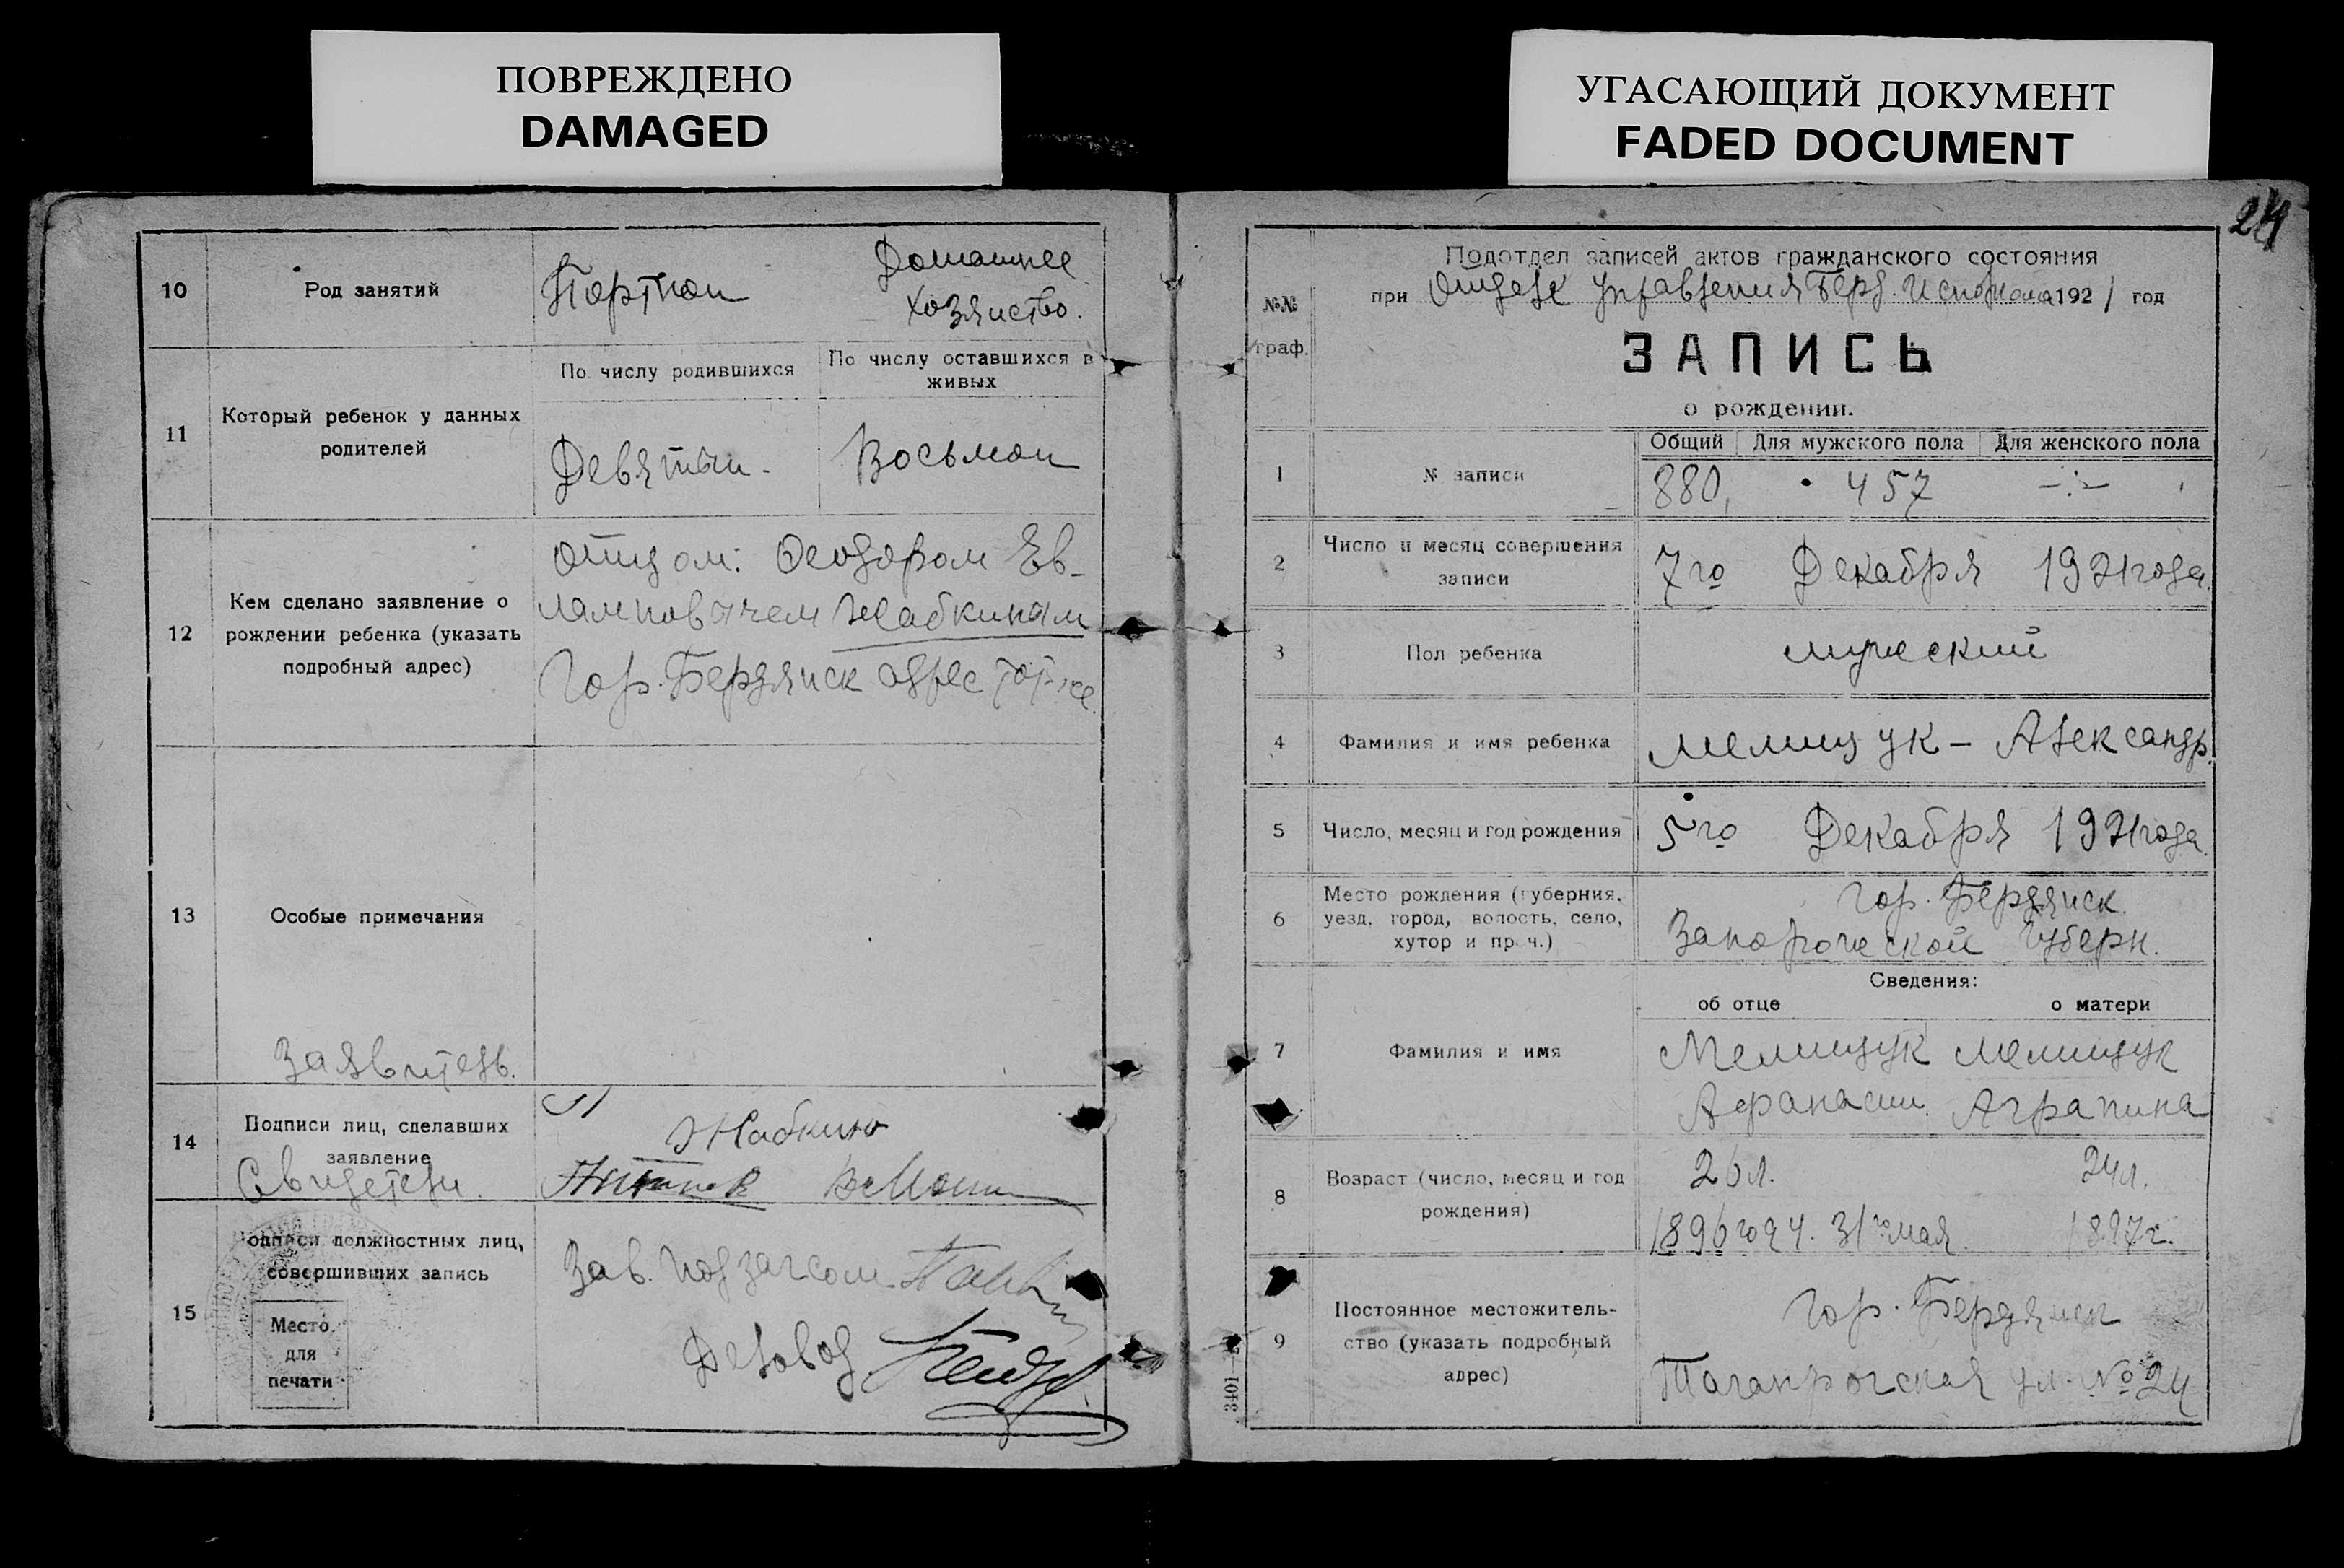 ПОВРЕЖДЕНО
DAMAGED
УГАСАЮЩИЙ ДОКУМЕНТ
FADED DOCUMENT
10
Род занятий
Портной
Домашнее
хозяйство.
11
Который ребенок у данных
родителей
По числу родившихся
По числу оставшихся в
живых
Девятый.
Восьмой
12
Кем сделано заявление о
рождении ребенка (указать
подробный адрес)
отцом: Феодором Ев-
ламповичем Жабкиным
Гор. Бердянск адрес тот же.
13
Особые примечания
Заявитель.
14
Подписи лиц, сделавших
заявление
Свидетели.
Жабкин
15
Подписи должностных лиц,
совершивших запись
Место
для
печати
Зав. подзагсом
Деловод
24
№№
граф.
Подотдел записей актов гражданского состояния
при Отделе Управления Берд. Исполкома 1921 год
ЗАПИСЬ
о рождении.
1
№ записи
Общий Для мужского пола Для женского пола
880, 457 -:-
2
Число и месяц совершения
записи
7го Декабря 1921 года.
3
Пол ребенка
мужеский
4
Фамилия и имя ребенка
Мелищук - Александр.
5
Число, месяц и год рождения
5го Декабря 1921 года.
6
Место рождения (губерния,
уезд, город, волость, село,
хутор и проч.)
гор. Бердянск.
Запорожеской Губерн.
Сведения:
об отце о матери
7
Фамилия и имя
Мелищук Мелищук
Афанасий Аграпина
8
Возраст (число, месяц и год
рождения)
26 л. 24 л.
1896 год 31го мая 1897 г.
9
Постоянное местожитель-
ство (указать подробный
адрес)
Гор. Бердянск
Таганрогская ул. № 24
3401